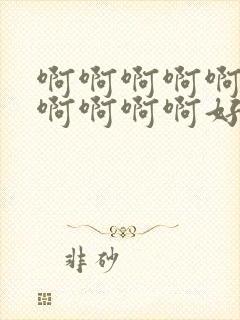 啊啊啊啊啊
啊啊啊啊好
非砂